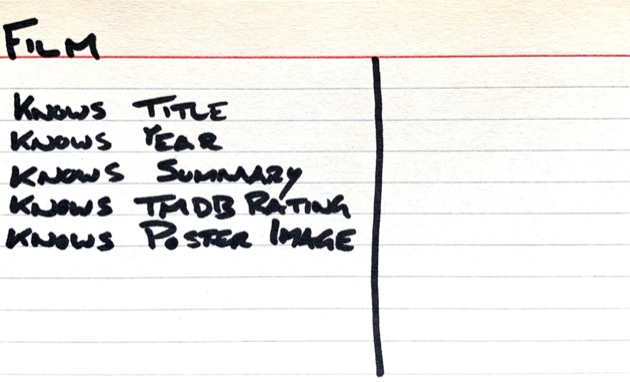 FILM
KNOWS TITLE
KNOWS YEAR
KNOWS SUMMARY
KNOWS TMDB RATING
KNOWS POSTER IMAGE